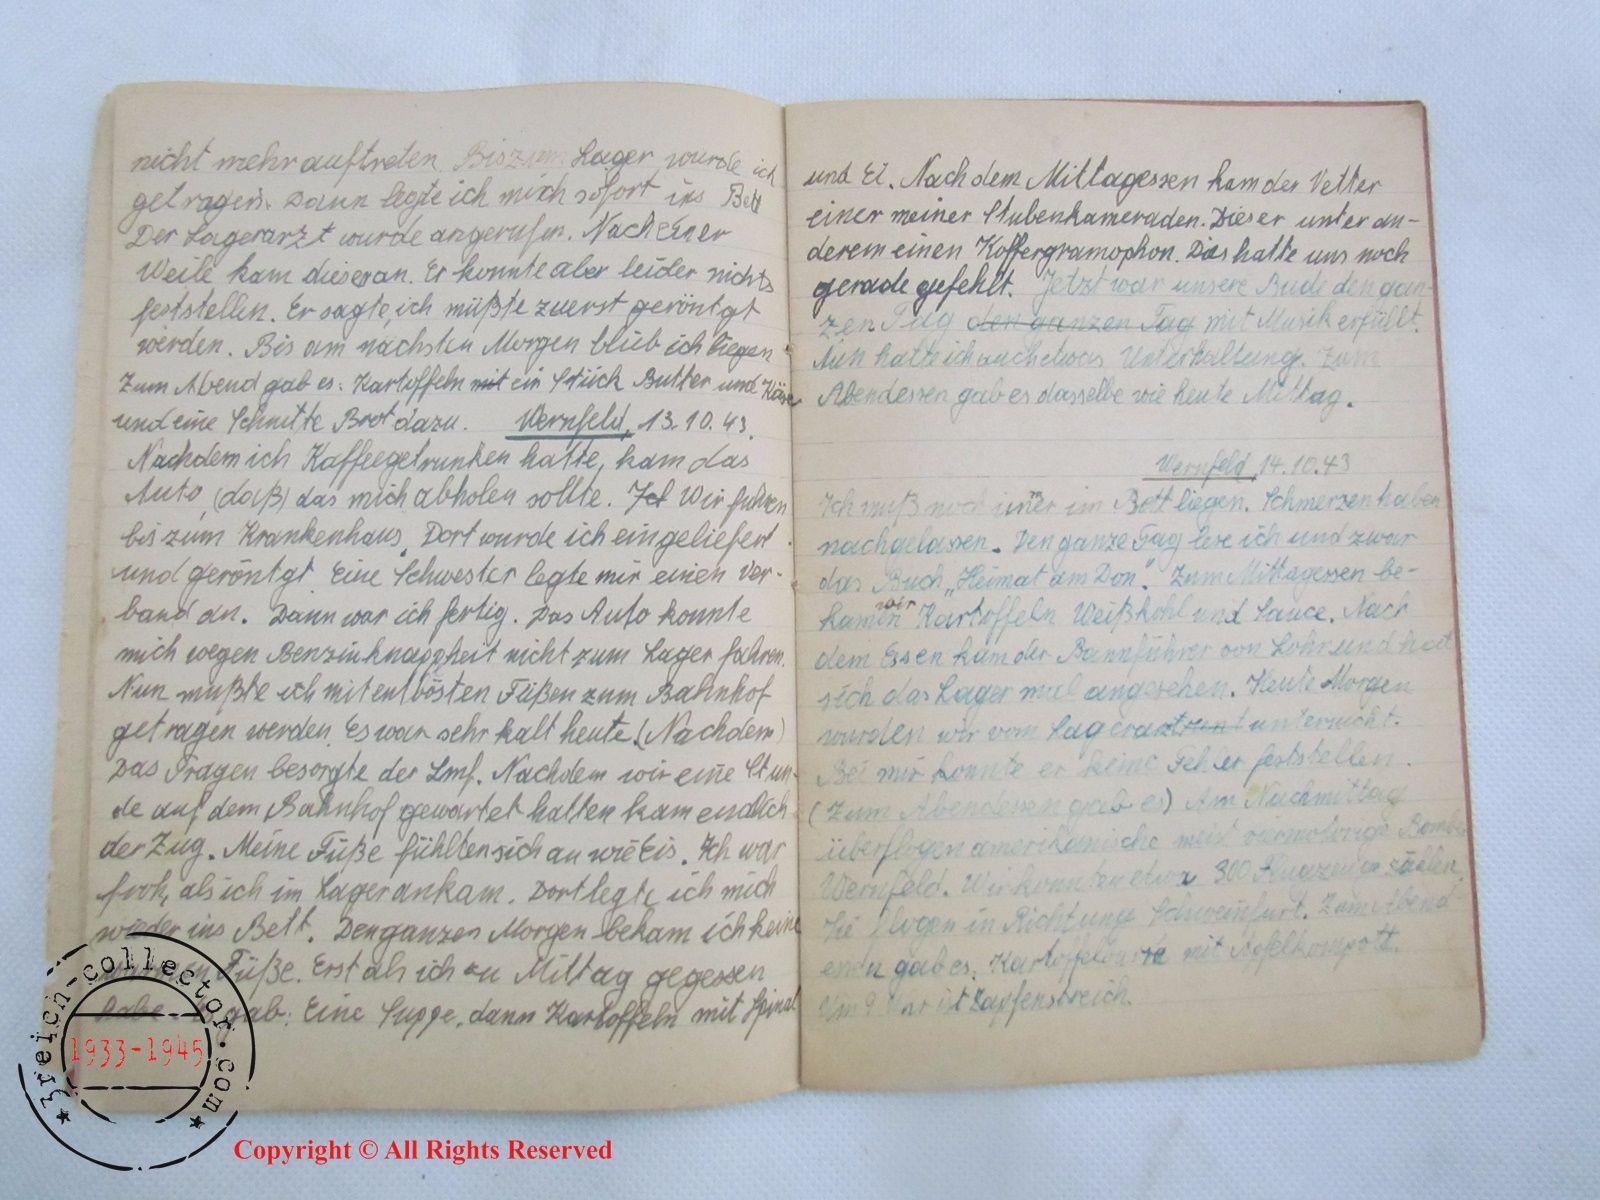 nicht mehr auftreten. Bis zum Lager wurde ich
getragen. Dann legte ich mich sofort ins Bett
Der Lagerarzt wurde angerufen. Nach einer
Weile kam dieser an. Er konnte aber leider nichts
feststellen. Er sagte, ich müßte zuerst geröntgt
werden. Bis am nächsten Morgen blieb ich liegen
Zum Abend gab es: Kartoffeln mit ein Stück Butter und Käse
und eine Schnitte Brot dazu. Wernfeld, 13.10.43.
Nachdem ich Kaffee getrunken hatte, kam das
Auto, (daß) das mich abholen sollte. Ich Wir fuhren
bis zum Krankenhaus. Dort wurde ich eingeliefert
und geröntgt. Eine Schwester legte mir einen Ver-
band an. Dann war ich fertig. Das Auto konnte
mich wegen Benzinknappheit nicht zum Lager fahren.
Nun mußte ich mit entbösten Füßen zum Bahnhof
getragen werden. Es war sehr kalt heute. (Nachdem)
Das Tragen besorgte der Lmf. Nachdem wir eine Stun-
de auf dem Bahnhof gewartet hatten kam endlich
der Zug. Meine Füße fühlten sich an wie Eis. Ich war
froh, als ich im Lager ankam. Dort legte ich mich
wieder ins Bett. Den ganzen Morgen bekam ich keine
Füße. Erst als ich zu Mittag gegessen
habe. Es gab: Eine Suppe, dann Kartoffeln mit Spinat
und Ei. Nach dem Mittagessen kam der Vetter
einer meiner Stubenkameraden. Dieser unter an-
derem einen Koffergramophon. Das hatte uns noch
gerade gefehlt. Jetzt war unsere Bude den gan-
zen Tag den ganzen Tag mit Musik erfüllt.
Nun hatte ich auch etwas Unterhaltung. Zum
Abendessen gab es dasselbe wie heute Mittag.
Wernfeld, 14.10.43
Ich muß noch immer im Bett liegen. Schmerzen haben
nachgelassen. Den ganze Tag lese ich und zwar
das Buch „Heimat am Don". Zum Mittagessen be-
kamen wir Kartoffeln Weißkohl und Sauce. Nach
dem Essen kam der Bannführer von Lohr und hat
sich das Lager mal angesehen. Heute Morgen
wurden wir vom Lagerarzt untersucht.
Bei mir konnte er keine Fehler feststellen.
(Zum Abendessen gab es) Am Nachmittag
überflogen amerikanische meist viermotorige Bomber
Wernfeld. Wir konnten etwa 300 Flugzeuge zählen.
Sie flogen in Richtung Schweinfurt. Zum Abend-
essen gab es: mit Apfelkompott.
Um 9 Uhr ist Zapfenstreich.
3reich-collector.com
1933-1945
Copyright © All Rights Reserved